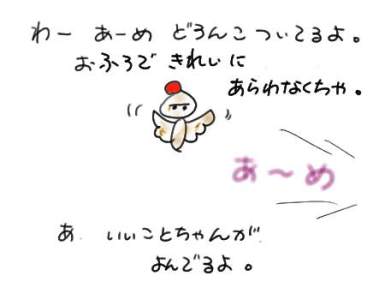 わー あーめ どろんこ ついてるよ。
おふろで きれいに
あらわなくちゃ。
あ〜め
あ いいことちゃんが
よんでるよ。